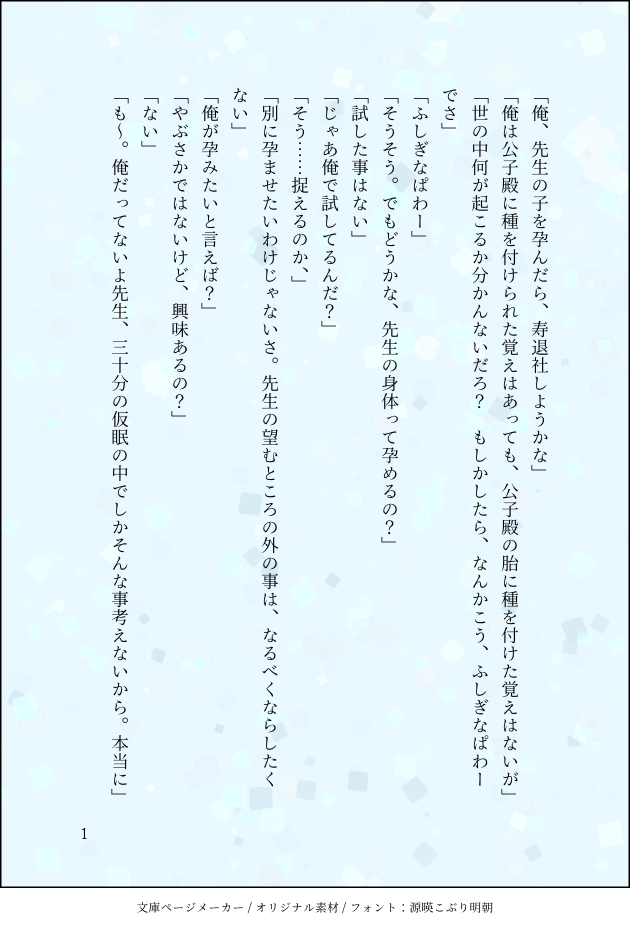 「俺、先生の子を孕んだら、寿退社しようかな」
「俺は公子殿に種を付けられた覚えはあっても、公子殿の胎に種を付けた覚えはないが」
「世の中何が起こるか分かんないだろ？　もしかしたら、なんかこう、ふしぎなぱわー
でさ」
「ふしぎなぱわー」
「そうそう。でもどうかな、先生の身体って孕めるの？」
「試した事はない」
「じゃあ俺で試してるんだ？」
「そう……捉えるのか、」
「別に孕ませたいわけじゃないさ。先生の望むところの外の事は、なるべくならしたく
ない」
「俺が孕みたいと言えば？」
「やぶさかではないけど、興味あるの？」
「ない」
「も〜。俺だってないよ先生、三十分の仮眠の中でしかそんな事考えないから。本当に」
1
文庫ページメーカー / オリジナル素材 / フォント：源暎こぶり明朝